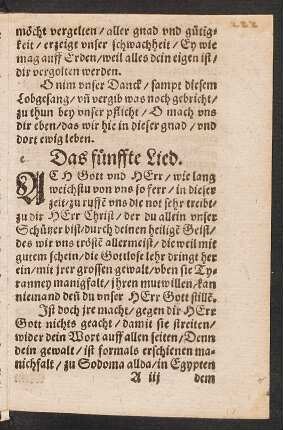 222
möcht vergelten / aller gnad vnd gütig-
keit / erzeigt vnser schwachheit / Ey wie
mag auff Erden / weil alles dein eigen ist /
dir vergolten werden.
O nim vnser Danck / sampt diesem
Lobgesang / vñ vergib was noch gebricht /
zu thun bey vnser pflicht / O mach vns
dir eben / das wir hie in dieser gnad / vnd
dort ewig leben.
Das fünffte Lied.
ACH Gott vnd HErr / wie lang
weichstu von vns so ferr / in dieser
zeit / zu ruffẽ vns die not sehr treibt /
zu dir HErr Christ / der du allein vnser
Schützer bist / durch deinen heiligẽ Geist /
des wir vns tröstẽ allermeist / die weil mit
gutem schein / die Gottlose lehr dringt her
ein / mit jrer grossen gewalt / oben sie Ty-
ranney manigfalt / jhren mutwillen / kan
niemand deñ du vnser HErr Gott stillẽ.
Ist doch jre macht / gegen dir HErr
Gott nichts geacht / damit sie streiten /
wider dein Wort auff allen seiten / Denn
dein gewalt / ist formals erschienen ma-
nichfalt / zu Sodoma allda / in Egypten
A iij dem